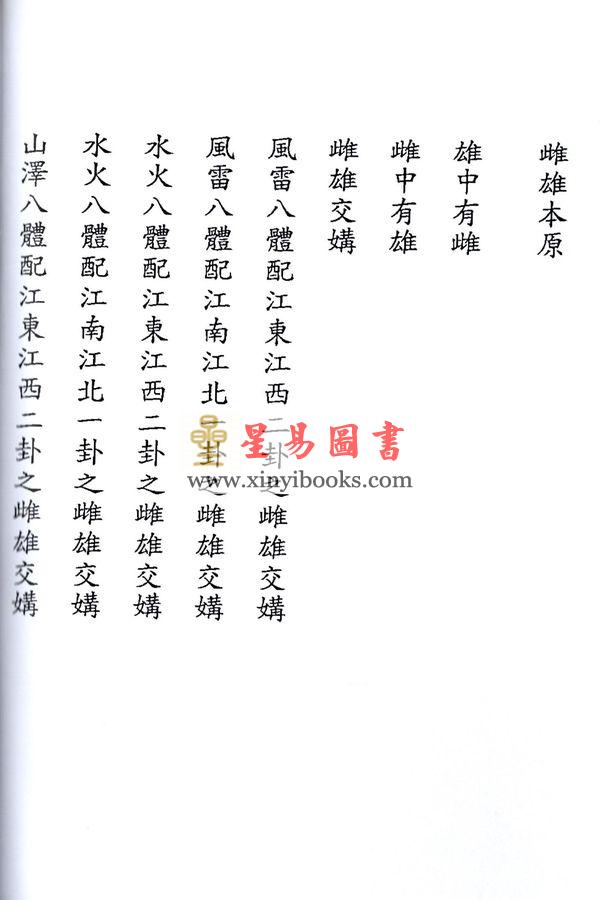 雌雄本原
雄中有雌
雌中有雄
雌雄交媾
風雷八體配江東江西二卦之雌雄交媾
風雷八體配江南江北一卦之雌雄交媾
水火八體配江東江西二卦之雌雄交媾
水火八體配江南江北一卦之雌雄交媾
山澤八體配江東江西二卦之雌雄交媾
星易圖書
www.xinyibooks.com